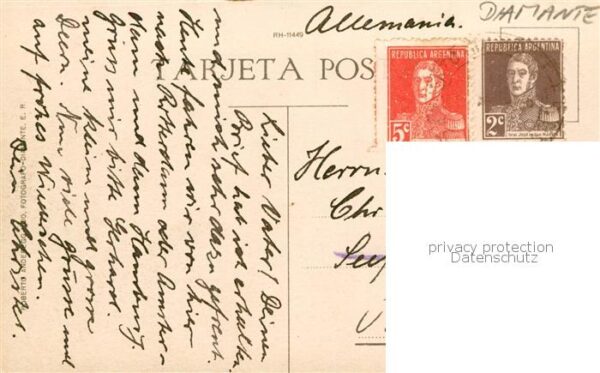 Allemania.
DIAMANTE
RH-11449
TARJETA POS
REPUBLICA ARGENTINA
5c
REPUBLICA ARGENTINA
2c
Herrn
Chr
Seef
Lieber Vater! Deinen
Brief hat ich erhalten
und mich sehr dazu gefreut.
Heut fahren wir von hier
nach Rotterdam oder Amster-
dam und dann Hamburg.
Grüss mir bitte Gerhard.
meine kleine und grosse
Deern. Nun viele Grüsse und
auf frohes Wiedersehen.
Dein
privacy protection
Datenschutz